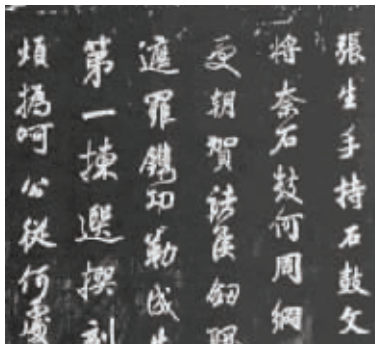 張生手持石鼓文
將奈石鼓何周綱
受朝賀諸侯劒珮
遮羅鐫功勒成告
第一揀選撰刻
煩撝呵公從何處